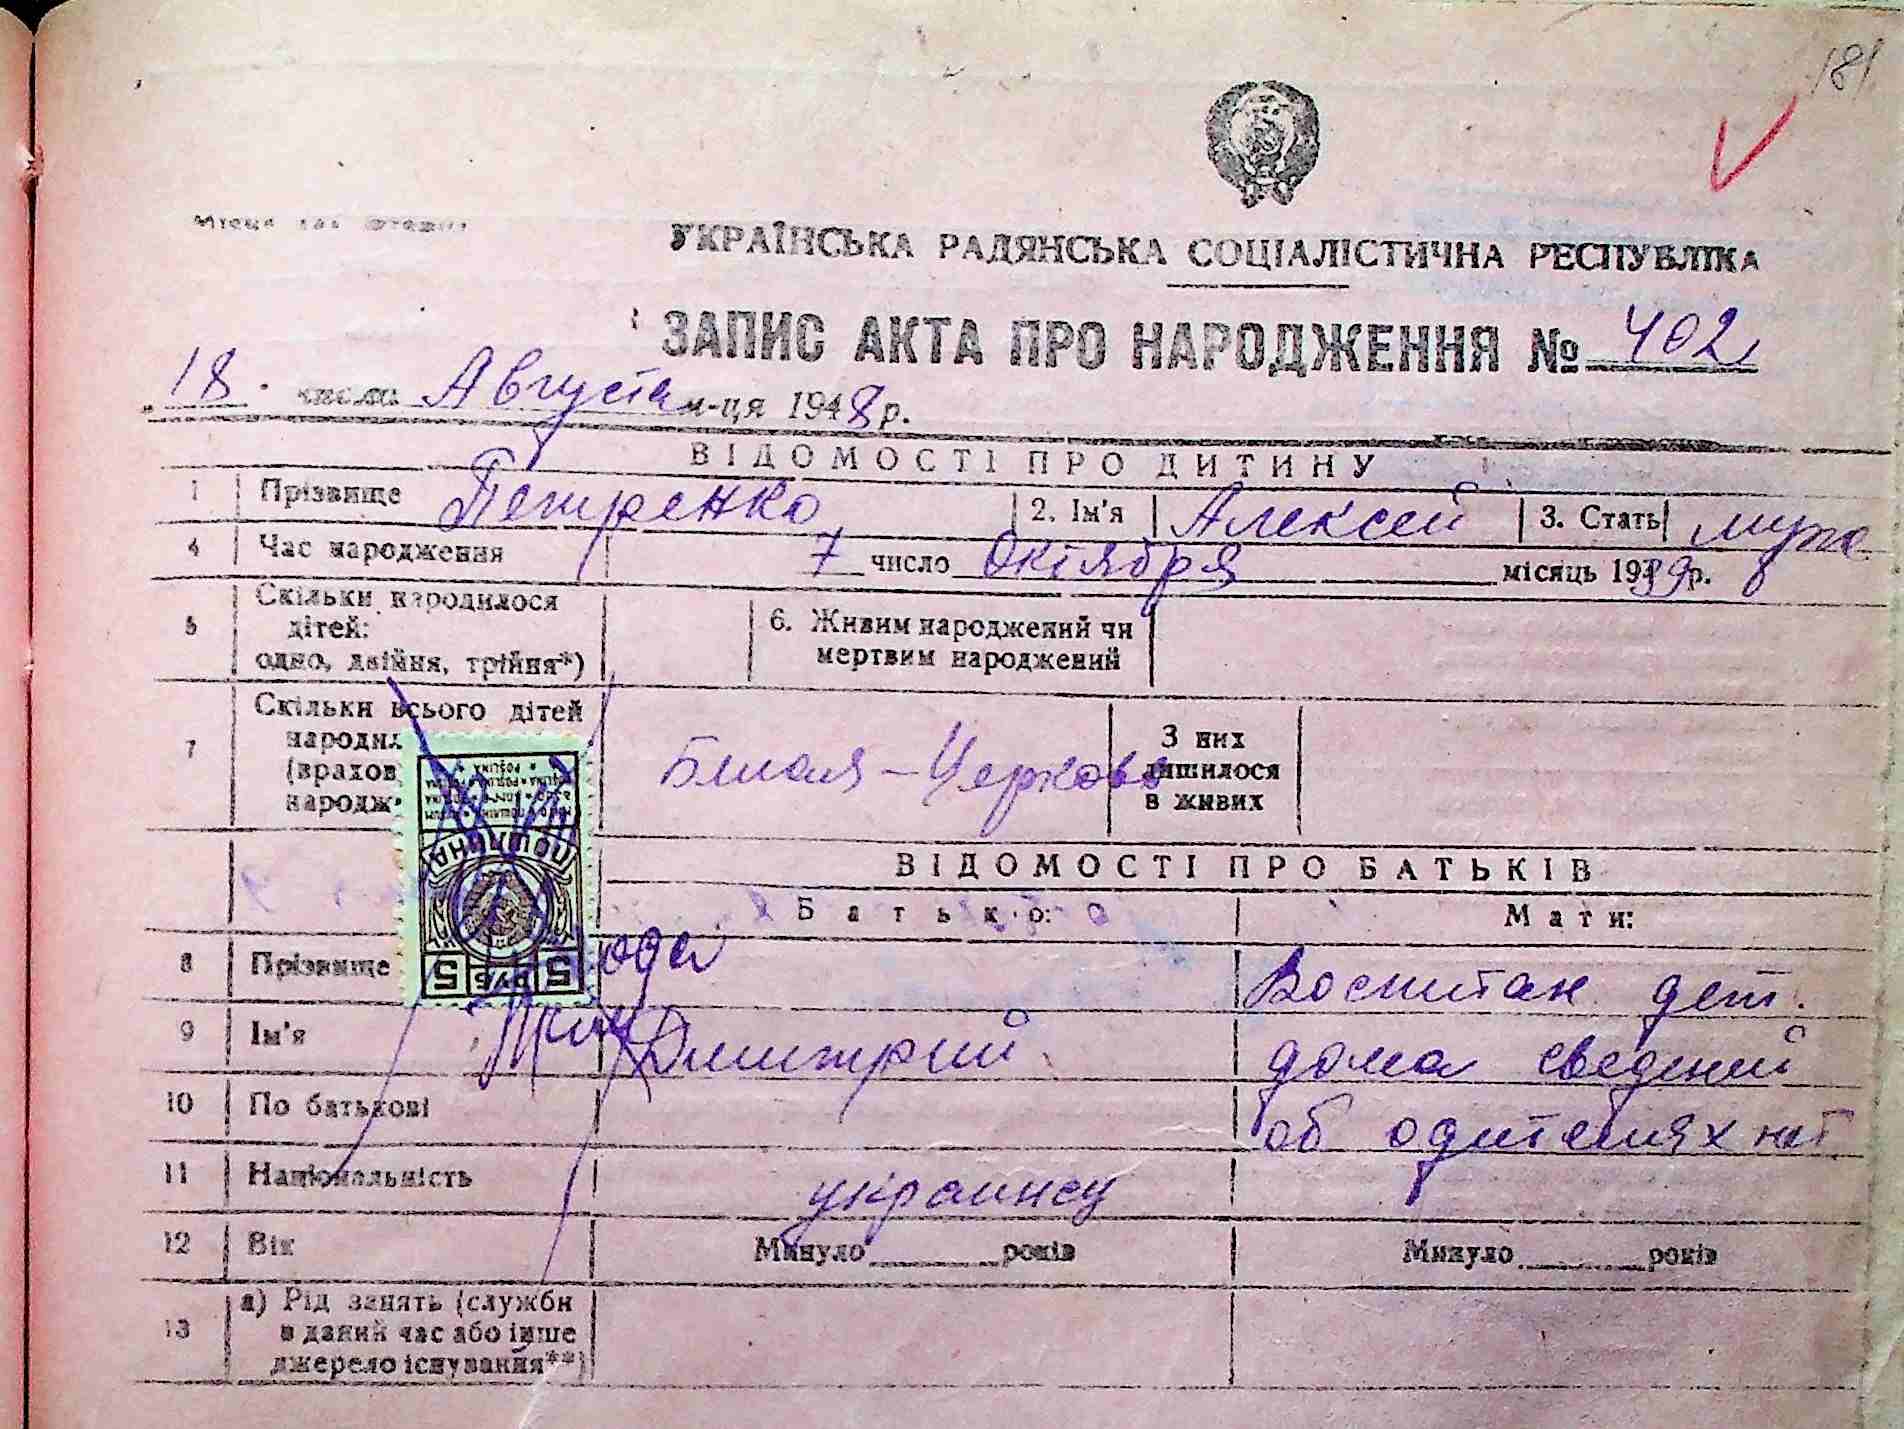 181
УКРАЇНСЬКА РАДЯНСЬКА СОЦІАЛІСТИЧНА РЕСПУБЛІКА
ЗАПИС АКТА ПРО НАРОДЖЕННЯ № 402
„18. числа Августа м-ця 1948 р.
ВІДОМОСТІ ПРО ДИТИНУ
1 Прізвище Петренко 2. Ім'я Алексей 3. Стать муж
4 Час народження 7 число Октября місяць 1939 р.
5 Скільки народилося
дітей:
одно, двійня, трійня*)
6. Живим народжений чи
мертвим народжений
7 Скільки всього дітей
народил
(врахов
народж
Белая-Церковь
З них
лишилося
в живих
ПОШЛИНА
5 РУБ 5
ВІДОМОСТІ ПРО БАТЬКІВ
Батько: Мати:
8 Прізвище Воспитан дет.
9 Ім'я Дмитрий дома сведений
10 По батькові об одителях нет
11 Національність украинец
12 Вік Минуло років Минуло років
13 а) Рід занять (служби
в даний час або інше
джерело існування**)